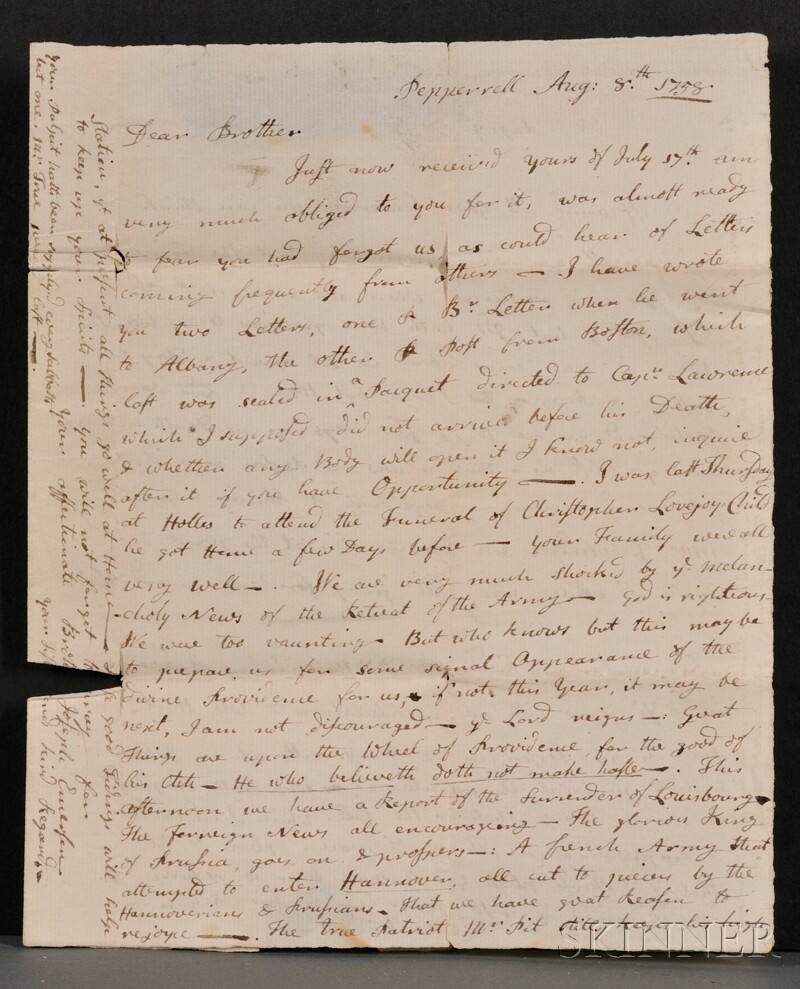 Pepperrell Aug: 8.th 1758
Dear Brother
Just now received yours of July 17th. am
very much obliged to you for it, was almost ready
to fear you had forgot us as could hear of Letters
coming frequently from others — I have wrote
you two Letters, one Br. Letter when he went
to Albany, the other Post from Boston, which
last was sealed in a Pacquet directed to Capn Lawrence
which I supposed did not arrive before his Death,
& whether any Body will open it I know not, inquire
after it if you have Opportunity —. I was last Thursday
at Holles to attend the Funeral of Christopher Lovejoy Child
he got Home a few Days before — your Family were all
very well —. We are very much shocked by ye melan-
choly News of the Retreat of the Army — God is righteous
We were too vaunting — But who knows but this may be
to prepare us for some signal Appearance of the
Divine Providence for us, if not this Year, it may be
next, I am not discouraged — ye Lord reigns —: Great
Things are upon the Wheel of Providence, for the good of
his Chh — He who believeth doth not make haste —. This
afternoon we have a Report of the Surrender of Louisbourg
The forreign News all encourageing — The glorious King
of Prussia, goes on & prospers —: A french Army that
attempted to enter Hannover, all cut to pieces by the
Hannoverians & Prussians — That we have great Reason to
rejoyce —. The true Patriot Mr. Pit still keeps his high
Station, yt at present all things go well at Home — good Tidings will help
to keep up your Spirits —. you will not forget to pray for
your affectionate Brother Joseph Emerson
your Pulpit hath been supplyd every Sabbath
but one. Mr. True was last —.
your kind Regards
SKINNER